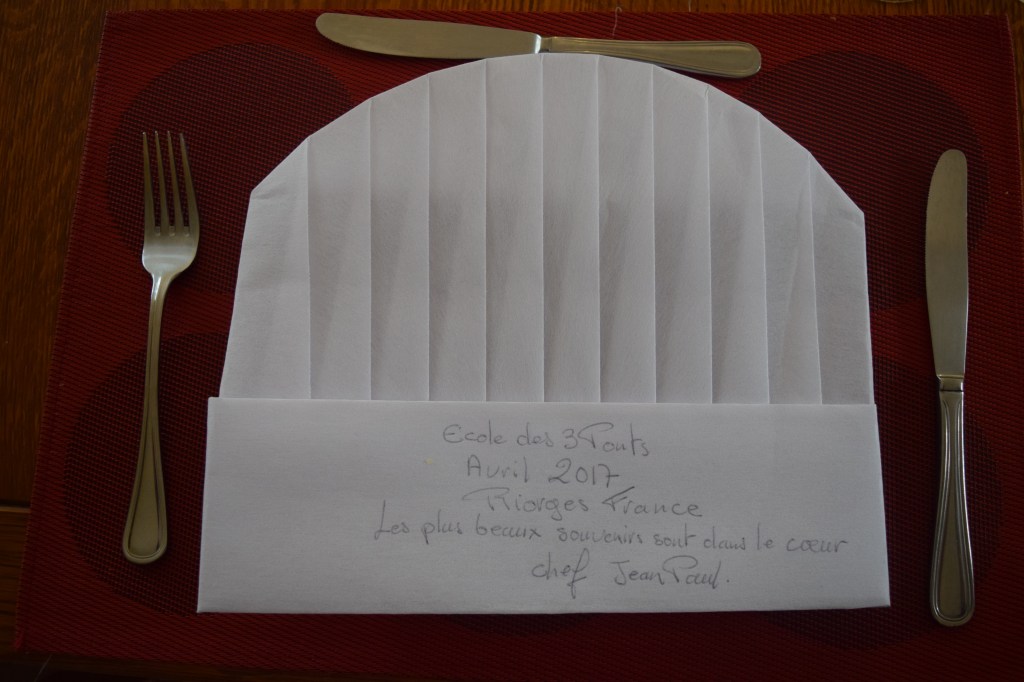 Ecole des 3 Ponts
Avril 2017
Riorges France
Les plus beaux souvenirs sont dans le cœur
chef Jean Paul.